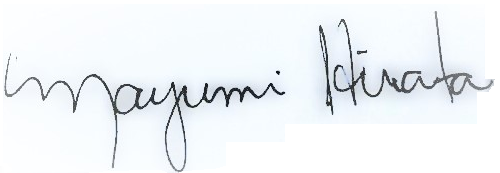 Mayumi Hirata